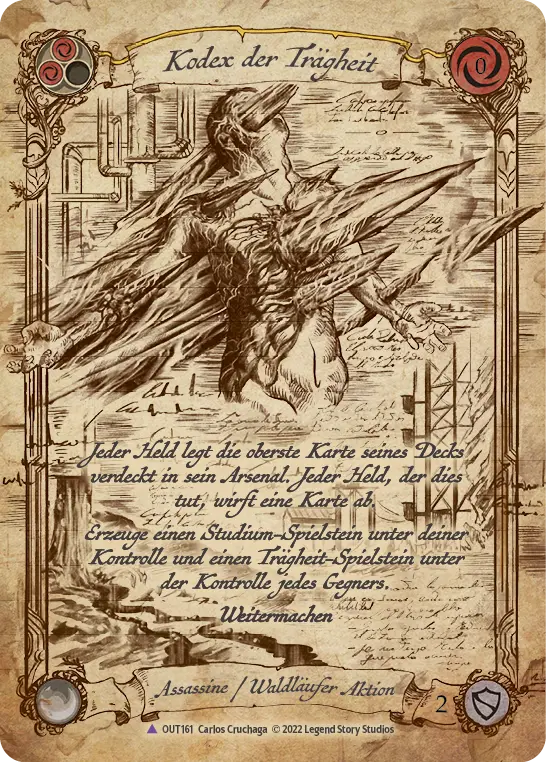 Kodex der Trägheit
0
Jeder Held legt die oberste Karte seines Decks
verdeckt in sein Arsenal. Jeder Held, der dies
tut, wirft eine Karte ab.
Erzeuge einen Studium-Spielstein unter deiner
Kontrolle und einen Trägheit-Spielstein unter
der Kontrolle jedes Gegners.
Weitermachen
Assassine / Waldläufer Aktion
2
OUT161 Carlos Cruchaga © 2022 Legend Story Studios